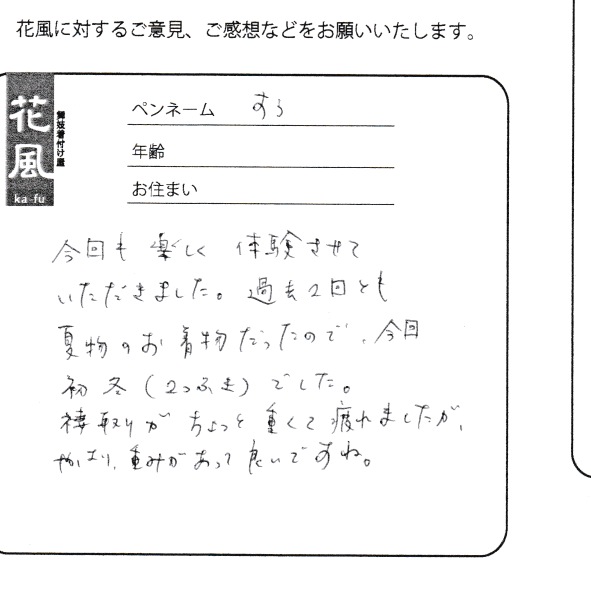 花風に対するご意見、ご感想などをお願いいたします。
花風
舞妓着付け屋
ka-fu
ペンネーム すう
年齢
お住まい
今回も 楽しく 体験させて
いただきました。過去2回とも
夏物のお着物だったので、今回
初 冬(2つふき)でした。
褄取りがちょっと重くて疲れましたが、
やはり、重みがあって良いですね。